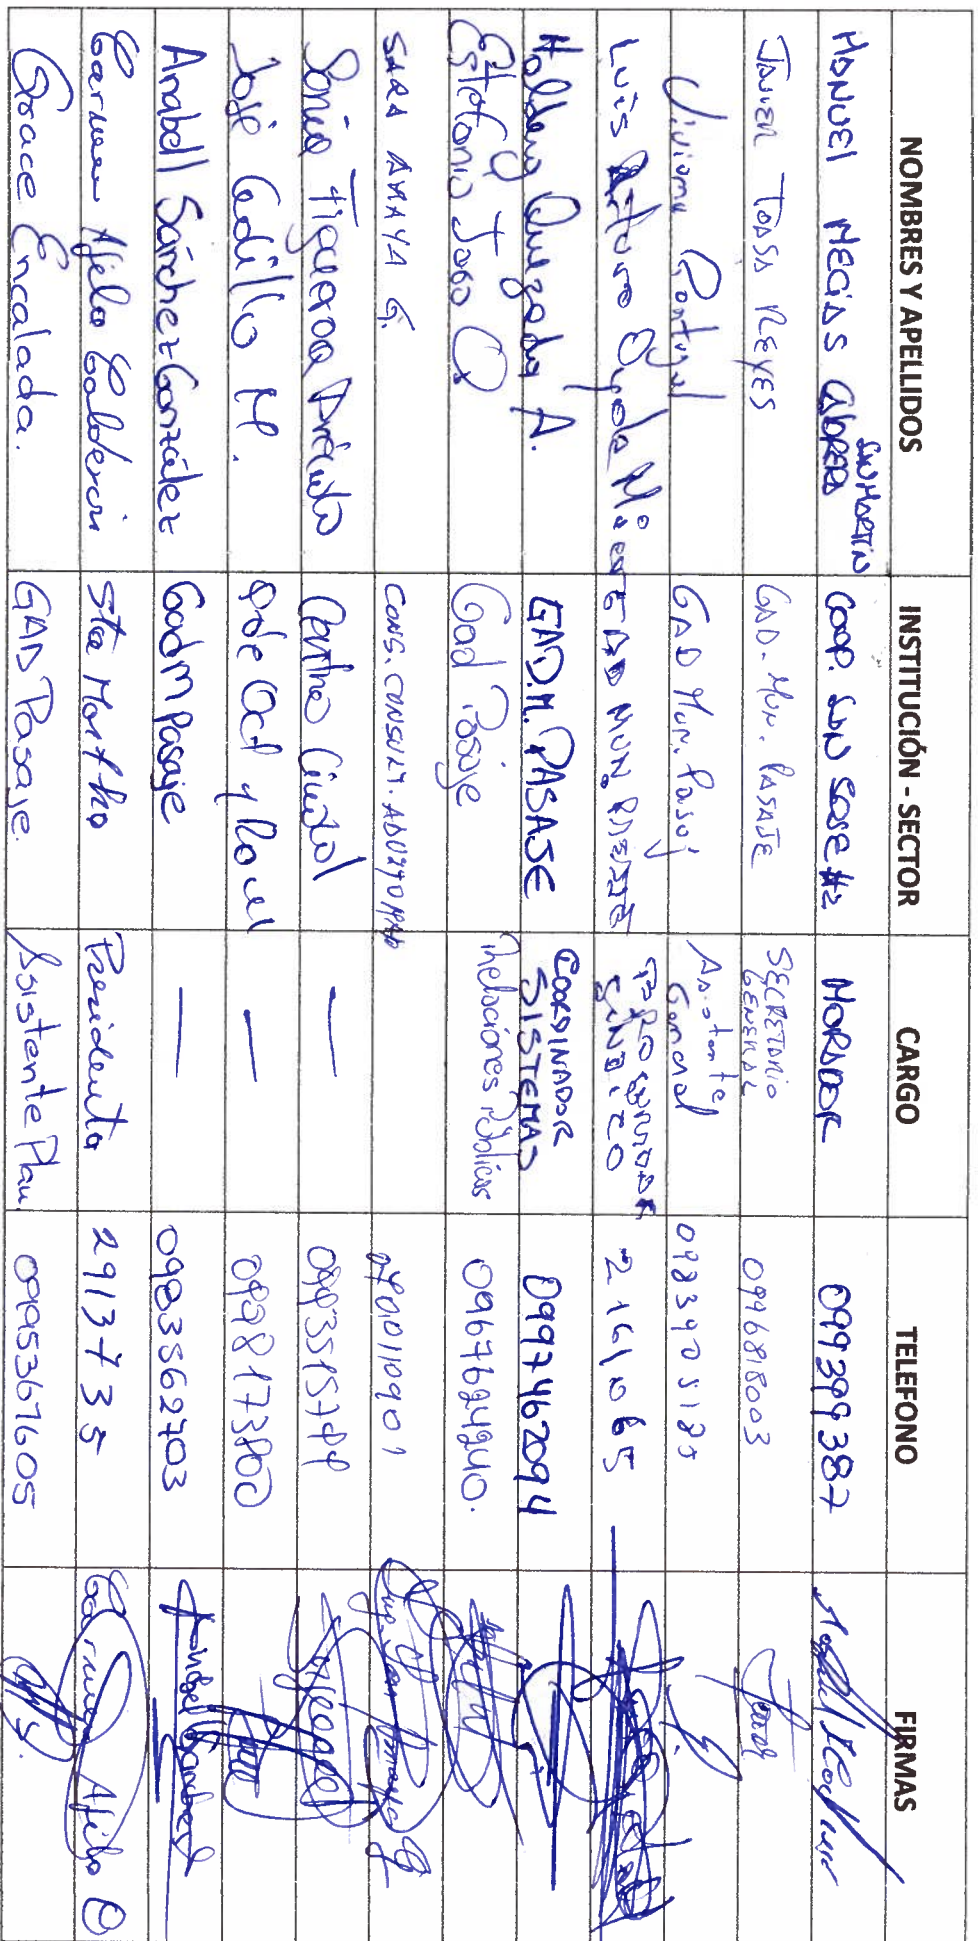 NOMBRES Y APELLIDOS INSTITUCIÓN - SECTOR CARGO TELEFONO FIRMAS
MANUEL MECIAS CABRERA SAN MARTIN COOP. SAN JOSE #2 MORADOR 0993993387
JAVIER TOASA REYES GAD. MUN. PASAJE SECRETARIO GENERAL 0996818003
Viviana Portugal GAD Mun. Pasaj Asistente 0983905185
Luis Arturo Oyola GAD MUN. PASAJE PROCURADOR SINDICO 2161065
Holden Quezada A. GAD.M. PASAJE COORDINADOR SISTEMAS 0997462094
Estefania Jaso Gad Pasaje Relaciones Públicas 0967624240.
SARA AMAYA G. CONS. CONSULT. 0701110901
Sonia Figueroa Centro Ciudad —
José Cedillo M. 9 de Oct y Rocuel — 0998173800
Anabell Sánchez González GadM Pasaje — 0983562703 Anabell Sanchez
Carmen Afila Calderón Sta Martha Presidenta 2913735 Carmen Afila
Grace Encalada. GAD Pasaje. Asistente Plan. 0995367605